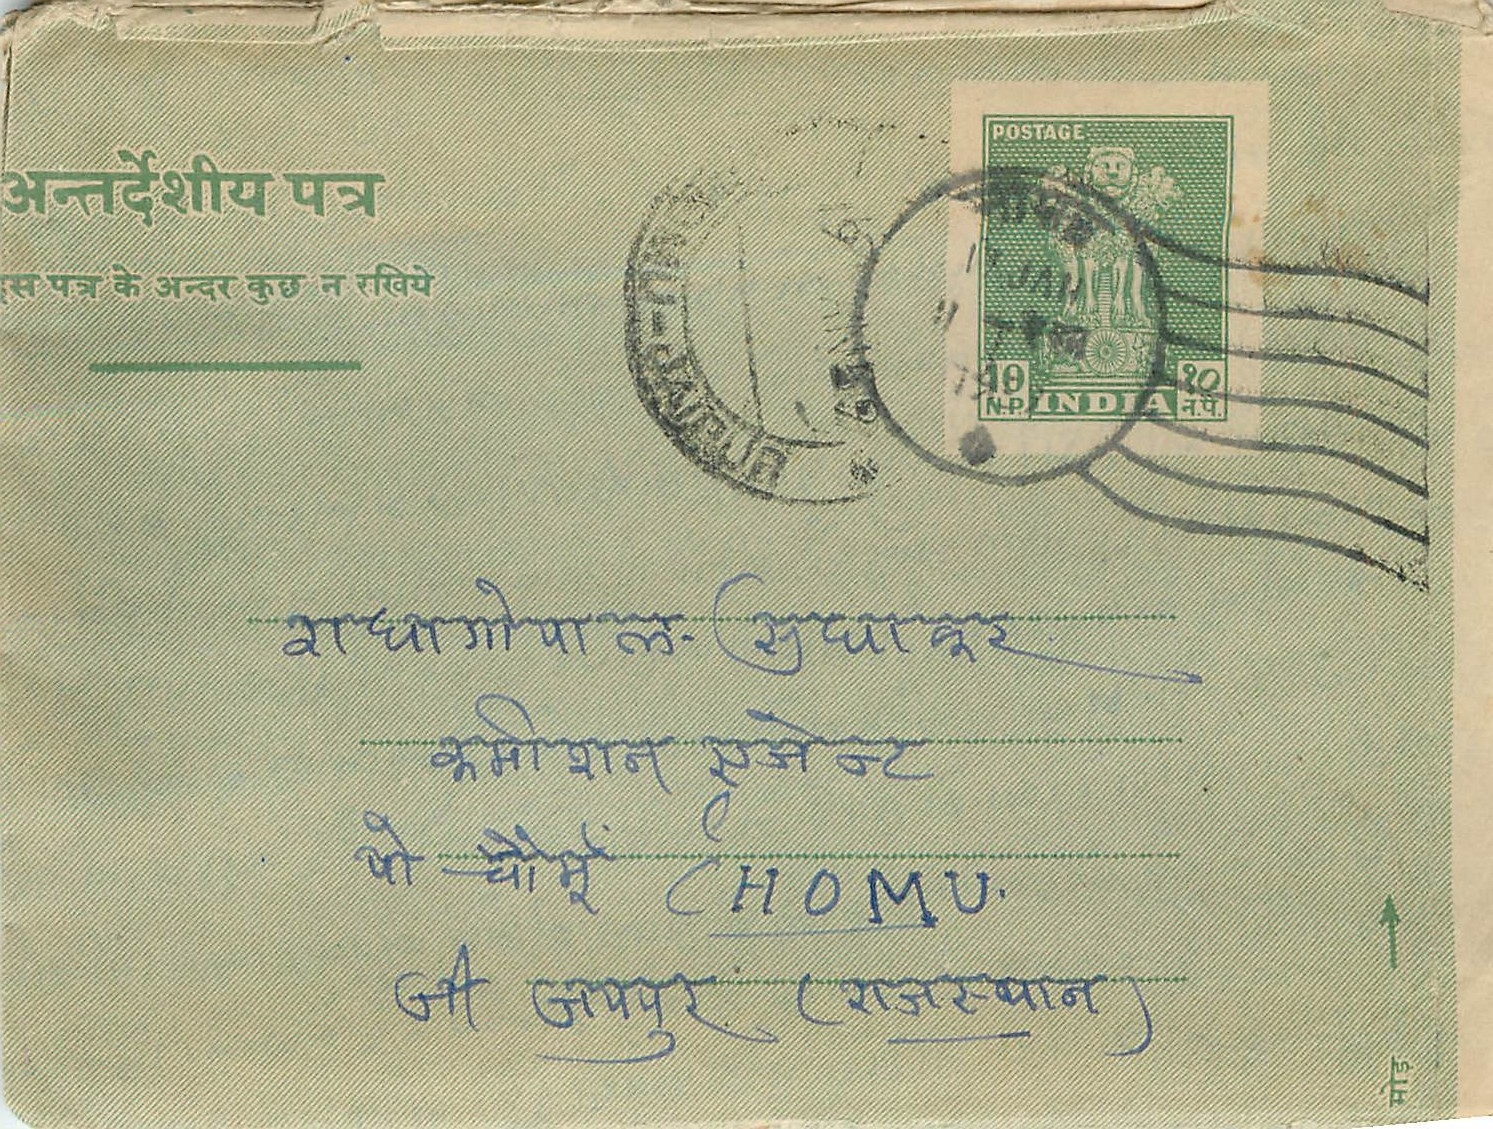 अन्तर्देशीय पत्र
इस पत्र के अन्दर कुछ न रखिये
POSTAGE
10 १०
N.P. INDIA न.पै.
JAIPUR
JAN
राधागोपाल- सुधाकर
कमीशन एजेन्ट
पो चौमूँ CHOMU.
जी जयपुर (राजस्थान)
मोड़